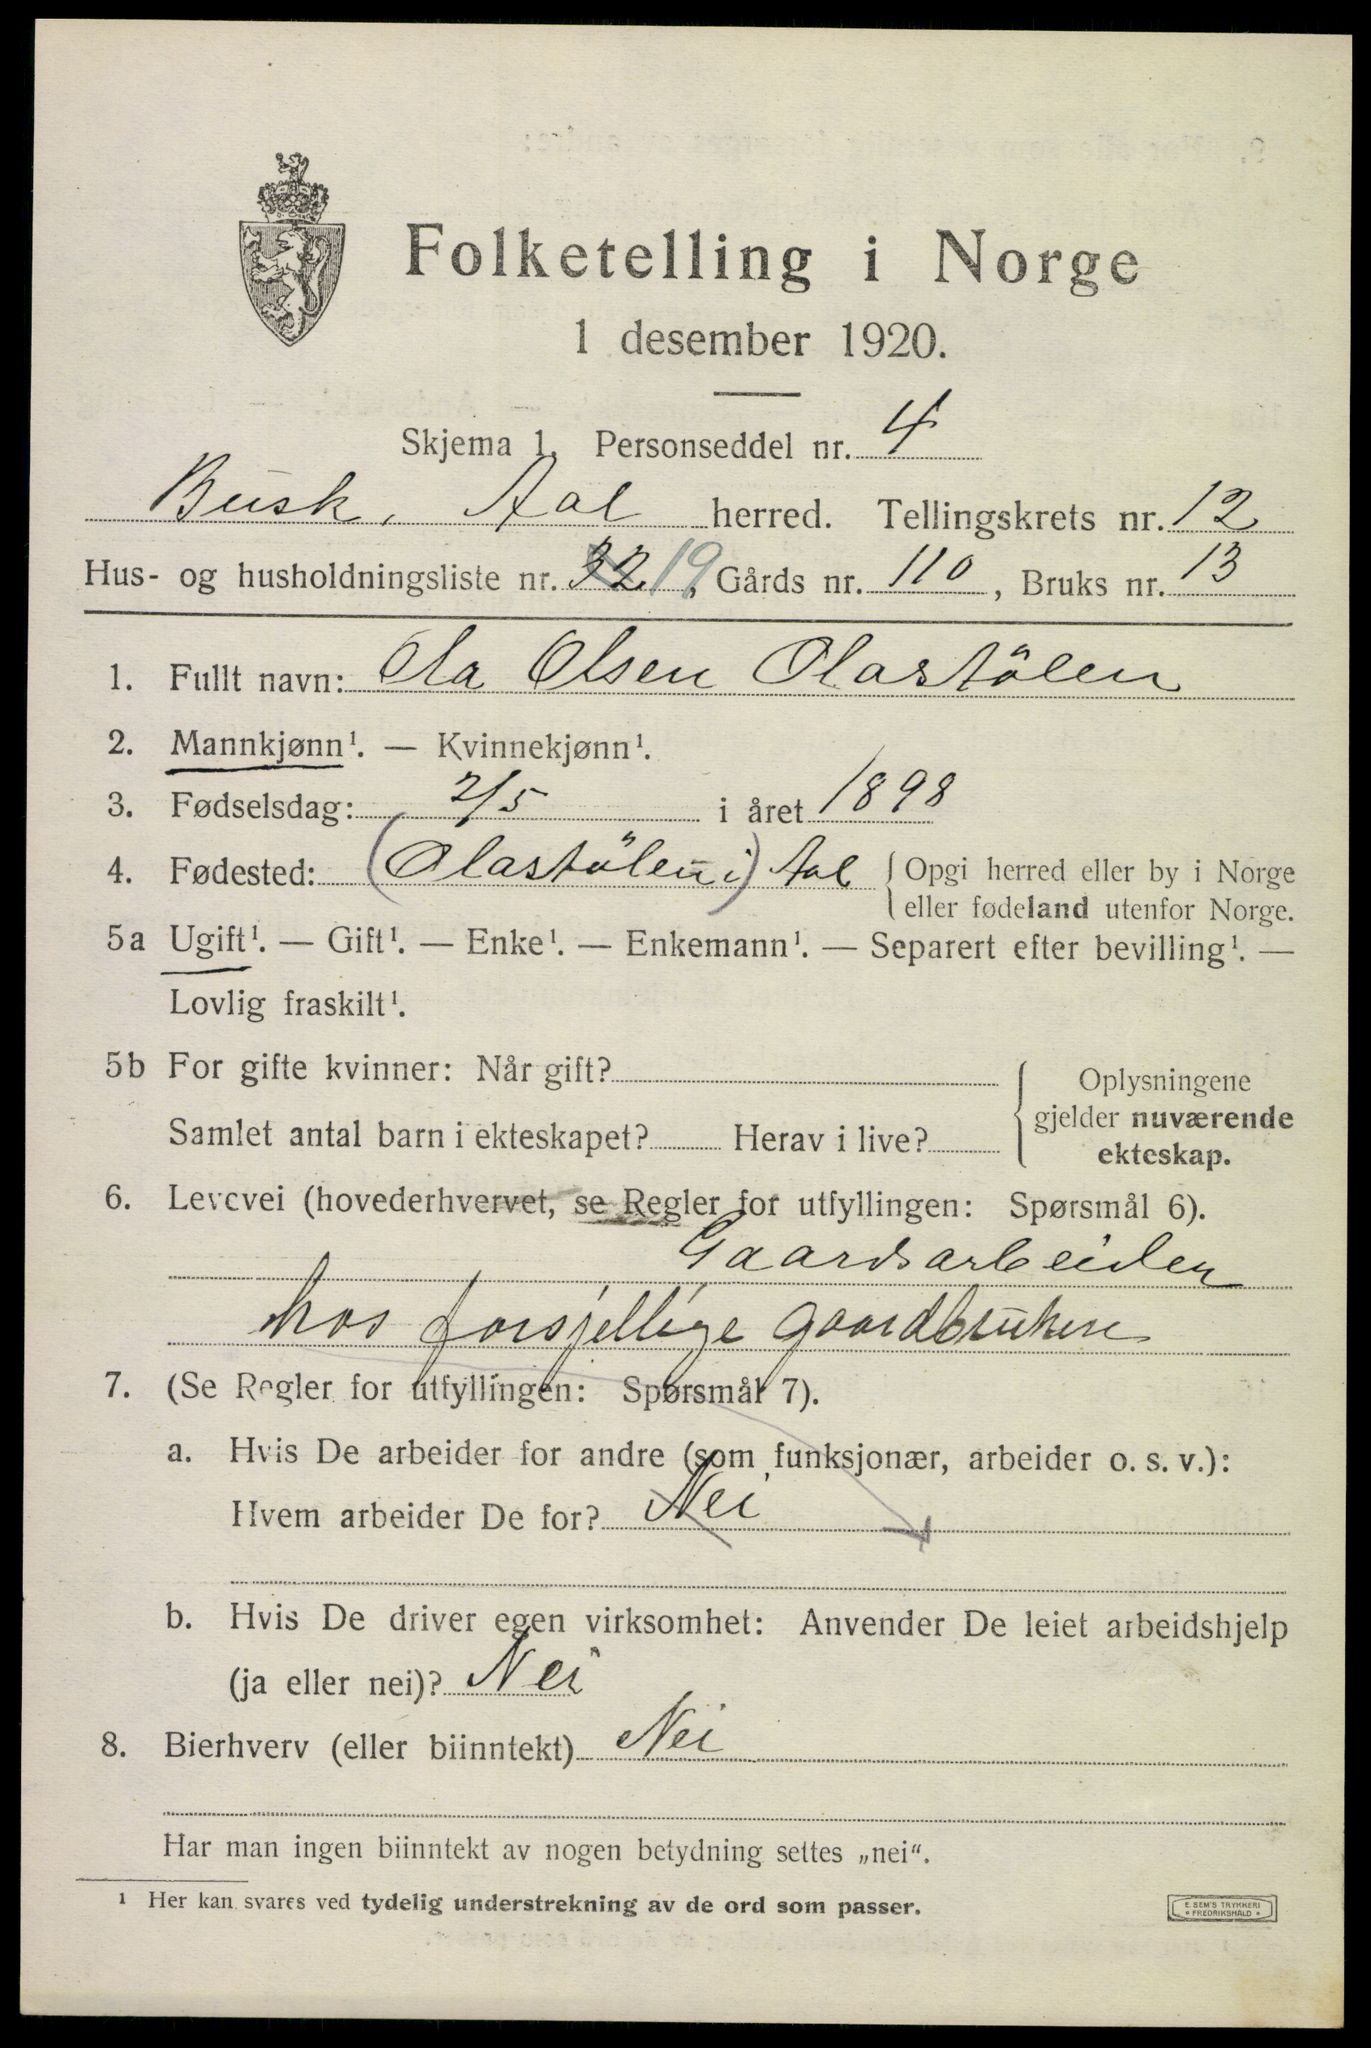 Folketelling i Norge
1 desember 1920.
Skjema 1. Personseddel nr. 4
Busk. Aal herred. Tellingskrets nr. 12
Hus- og husholdningsliste nr. 32 19, Gårds nr. 110, Bruks nr. 13
1. Fullt navn: Ola Olsen Olastölen
2. Mannkjønn¹. — Kvinnekjønn¹.
3. Fødselsdag: 2/5 i året 1898
4. Fødested: (Olastölen i) Aal { Opgi herred eller by i Norge
eller fødeland utenfor Norge.
5a Ugift¹. — Gift¹. — Enke¹. — Enkemann¹. — Separert efter bevilling¹. —
Lovlig fraskilt¹.
5b For gifte kvinner: Når gift? { Oplysningene
gjelder nuværende
Samlet antal barn i ekteskapet? Herav i live?
ekteskap.
6. Levevei (hovederhvervet, se Regler for utfyllingen: Spørsmål 6).
Gaardsarbeider
hos forsjellige gaardbrukere
7. (Se Regler for utfyllingen: Spørsmål 7).
a. Hvis De arbeider for andre (som funksjonær, arbeider o. s. v.):
Hvem arbeider De for? Nei
b. Hvis De driver egen virksomhet: Anvender De leiet arbeidshjelp
(ja eller nei)? Nei
8. Bierhverv (eller biinntekt) Nei
Har man ingen biinntekt av nogen betydning settes „nei“.
¹ Her kan svares ved tydelig understrekning av de ord som passer.
E. SEM'S TRYKKERI
* FREDRIKSHALD *